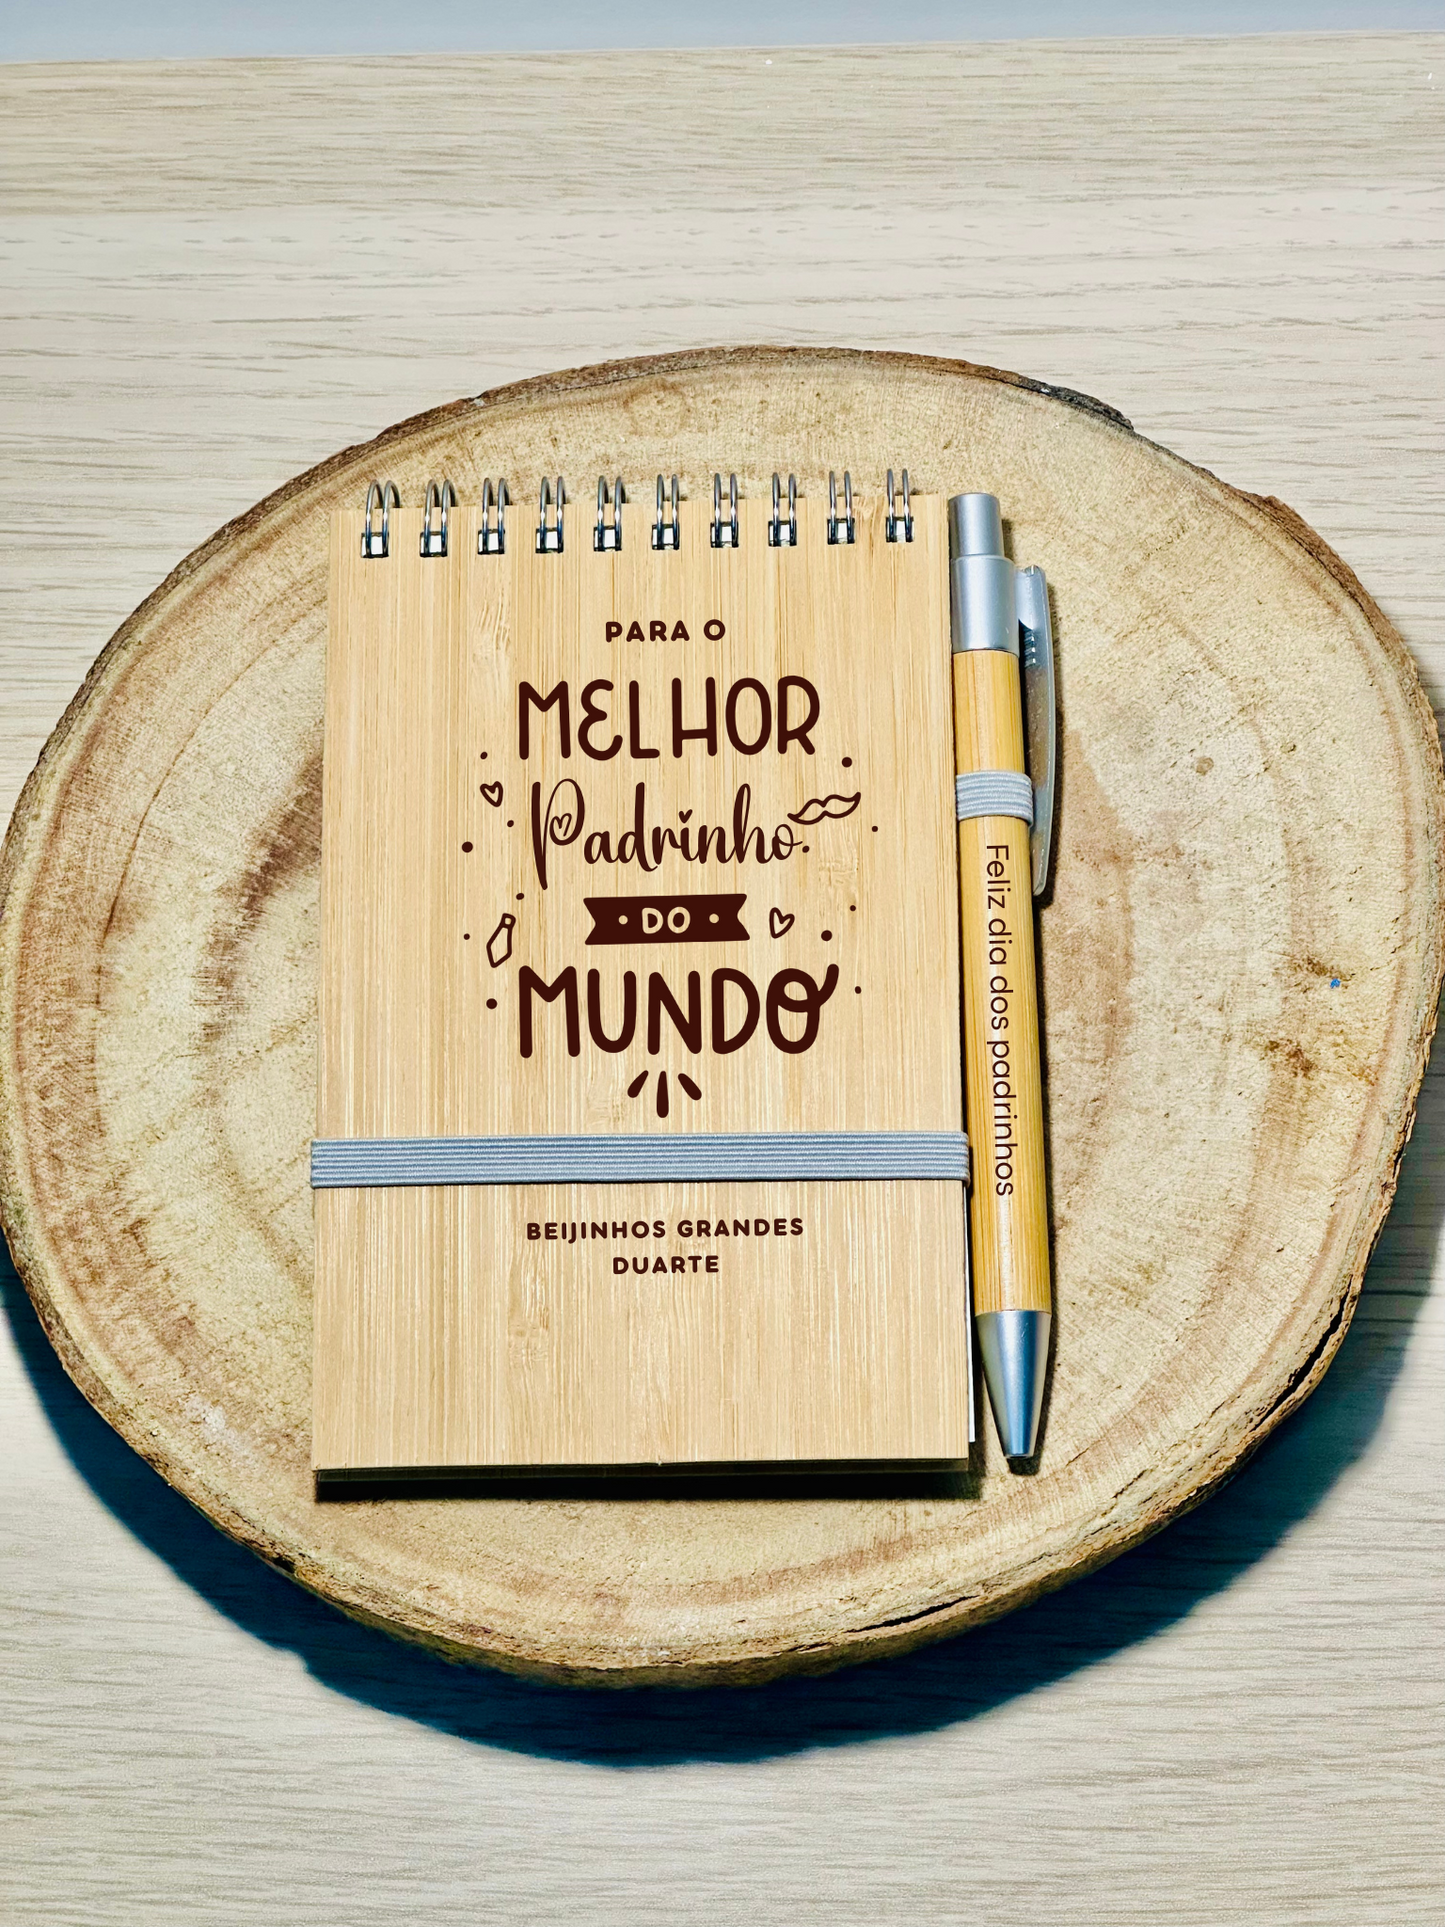 PARA O
MELHOR
Padrinho
DO
MUNDO
BEIJINHOS GRANDES
DUARTE
Feliz dia dos padrinhos